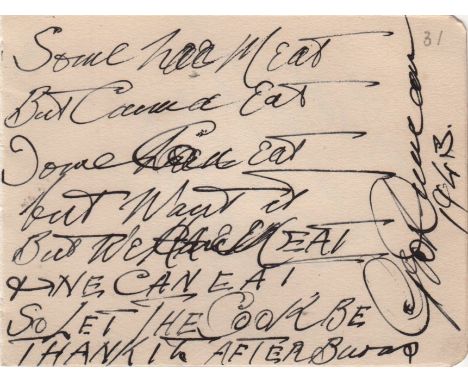 Some hae Meat
But Canna Eat
Some Can Eat
but Want it
But We Hae MEAT
& WE CAN EAT
SO LET THE COOK BE
THANKIT AFTER Burns
31
Duncan
1943.